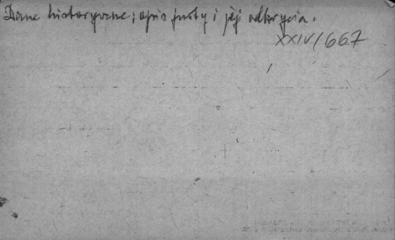 Dane historyczne; opis groty i jej odkrycia.
XXIV/667